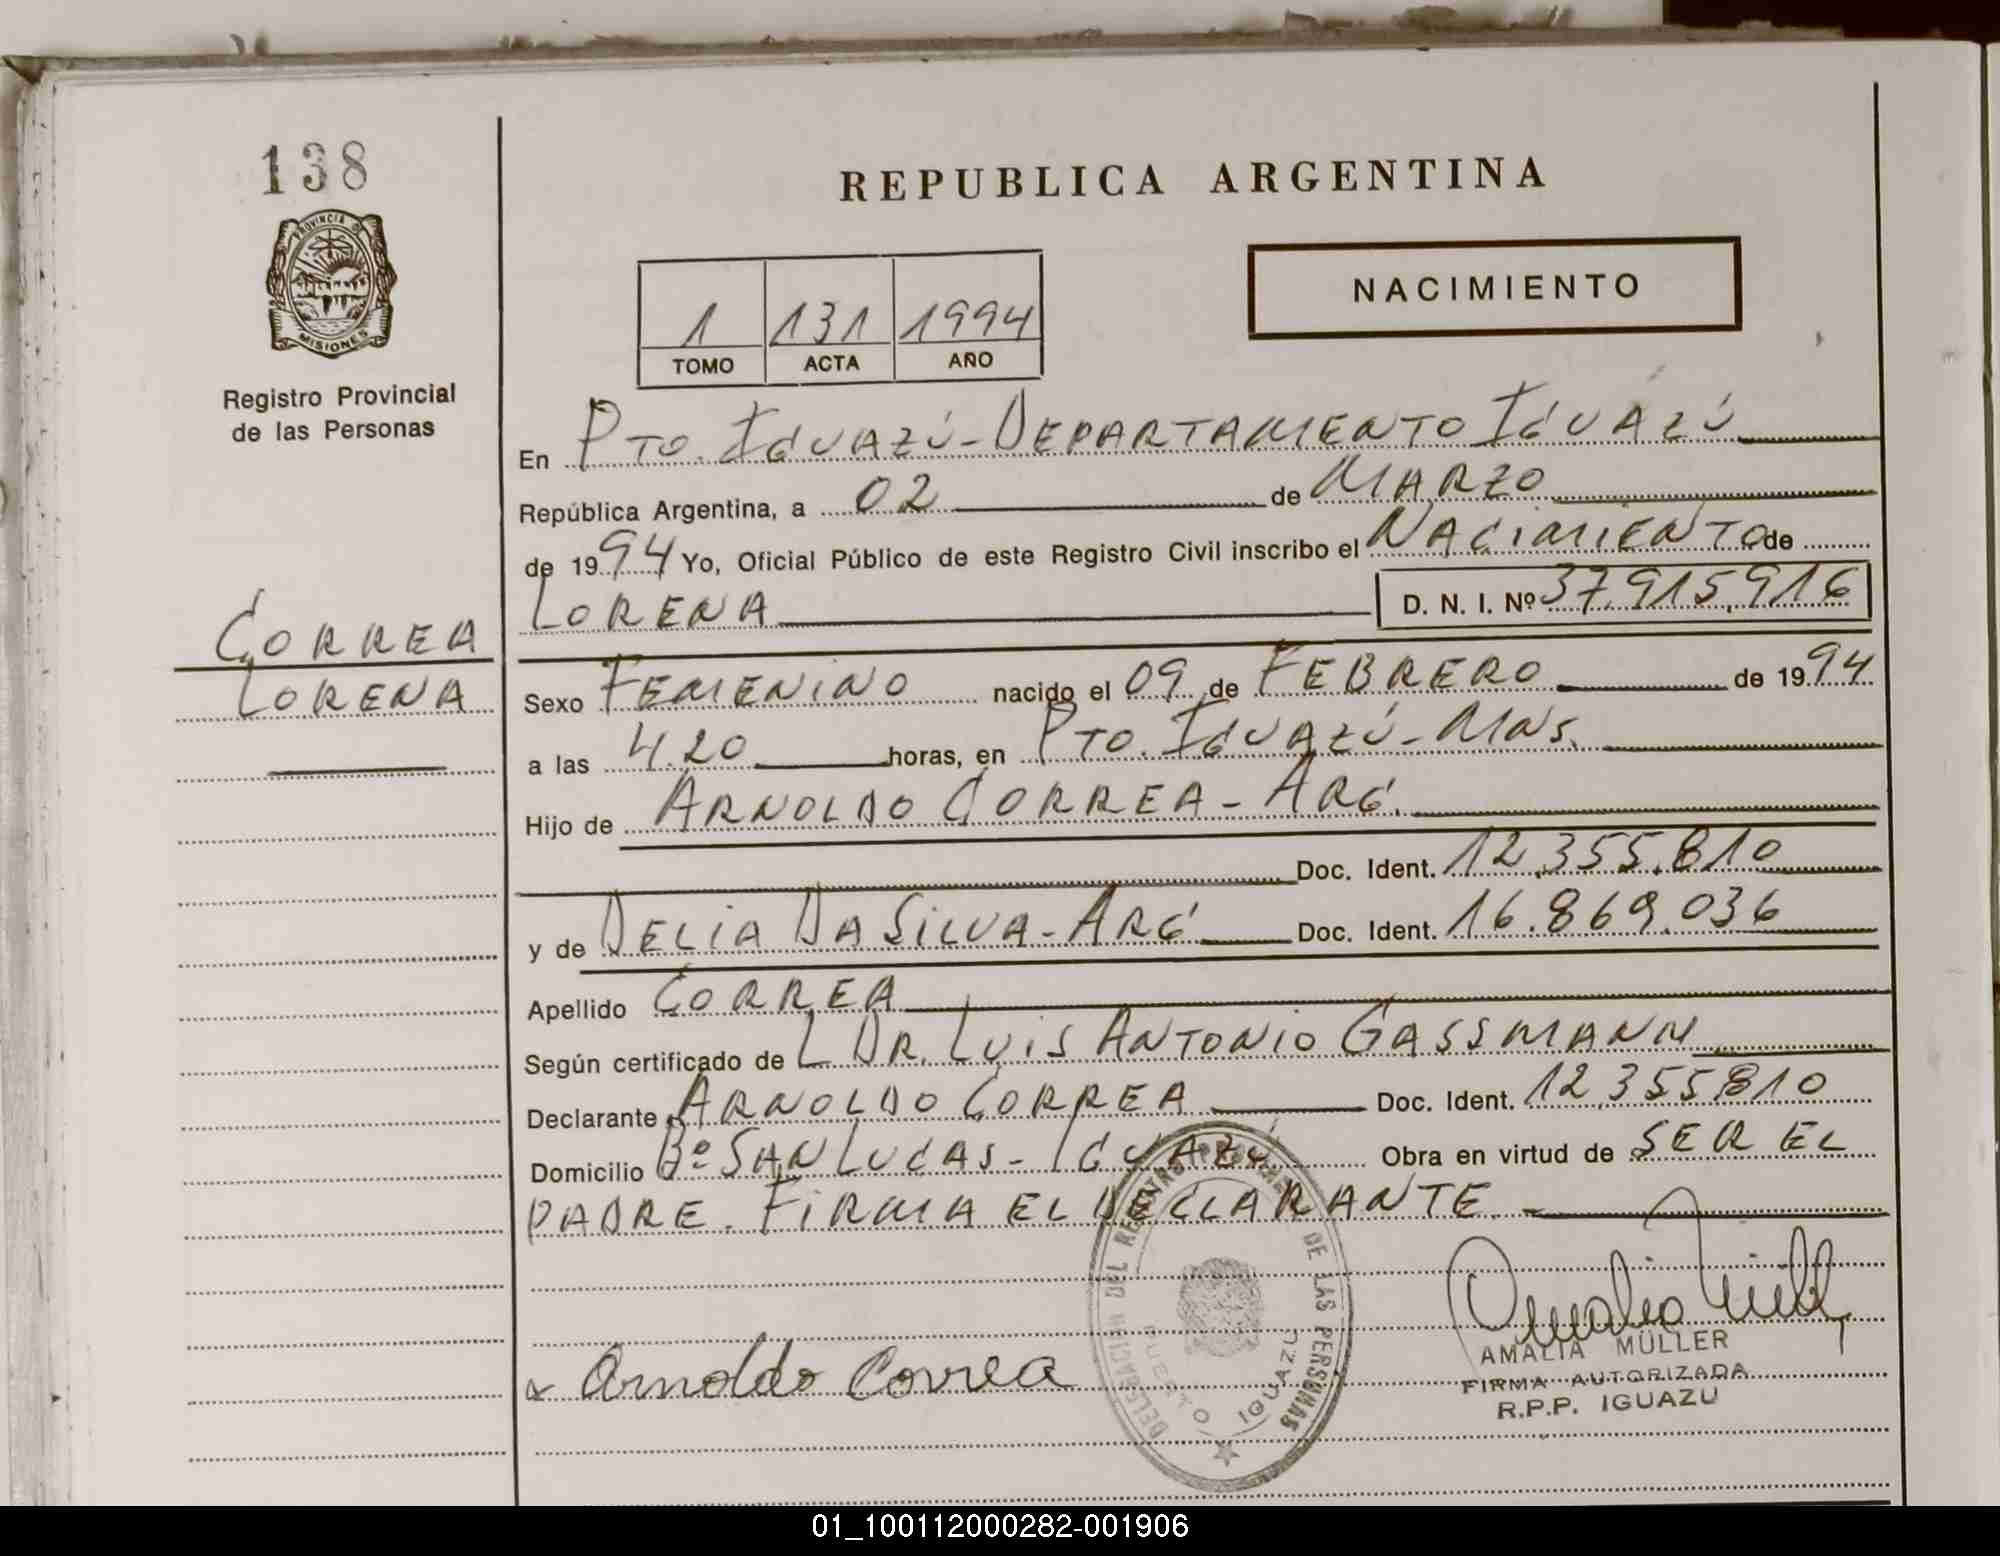 138
PROVINCIA DE
MISIONES
Registro Provincial
de las Personas
CORREA
LORENA
REPUBLICA ARGENTINA
NACIMIENTO
1 131 1994
TOMO ACTA AÑO
En PTO. IGUAZÚ - DEPARTAMENTO IGUAZÚ
República Argentina, a 02 de MARZO
de 1994 Yo, Oficial Público de este Registro Civil inscribo el NACIMIENTO de
LORENA D. N. I. Nº 37.915.916
Sexo FEMENINO nacido el 09 de FEBRERO de 1994
a las 4.20 horas, en PTO. IGUAZÚ - MNS.
Hijo de ARNOLDO CORREA - ARG.
Doc. Ident. 12.355.810
y de DELIA DA SILVA - ARG Doc. Ident. 16.869.036
Apellido CORREA
Según certificado de L DR. LUIS ANTONIO GASSMANN
Declarante ARNOLDO CORREA Doc. Ident. 12.355.810
Domicilio Bº SAN LUCAS - IGUAZÚ Obra en virtud de SER EL
PADRE. FIRMA EL DECLARANTE. -
Arnoldo Correa
DEL REGISTRO DE LAS PERSONAS
PUERTO IGUAZU
AMALIA MÜLLER
FIRMA AUTORIZADA
R.P.P. IGUAZU
01_100112000282-001906